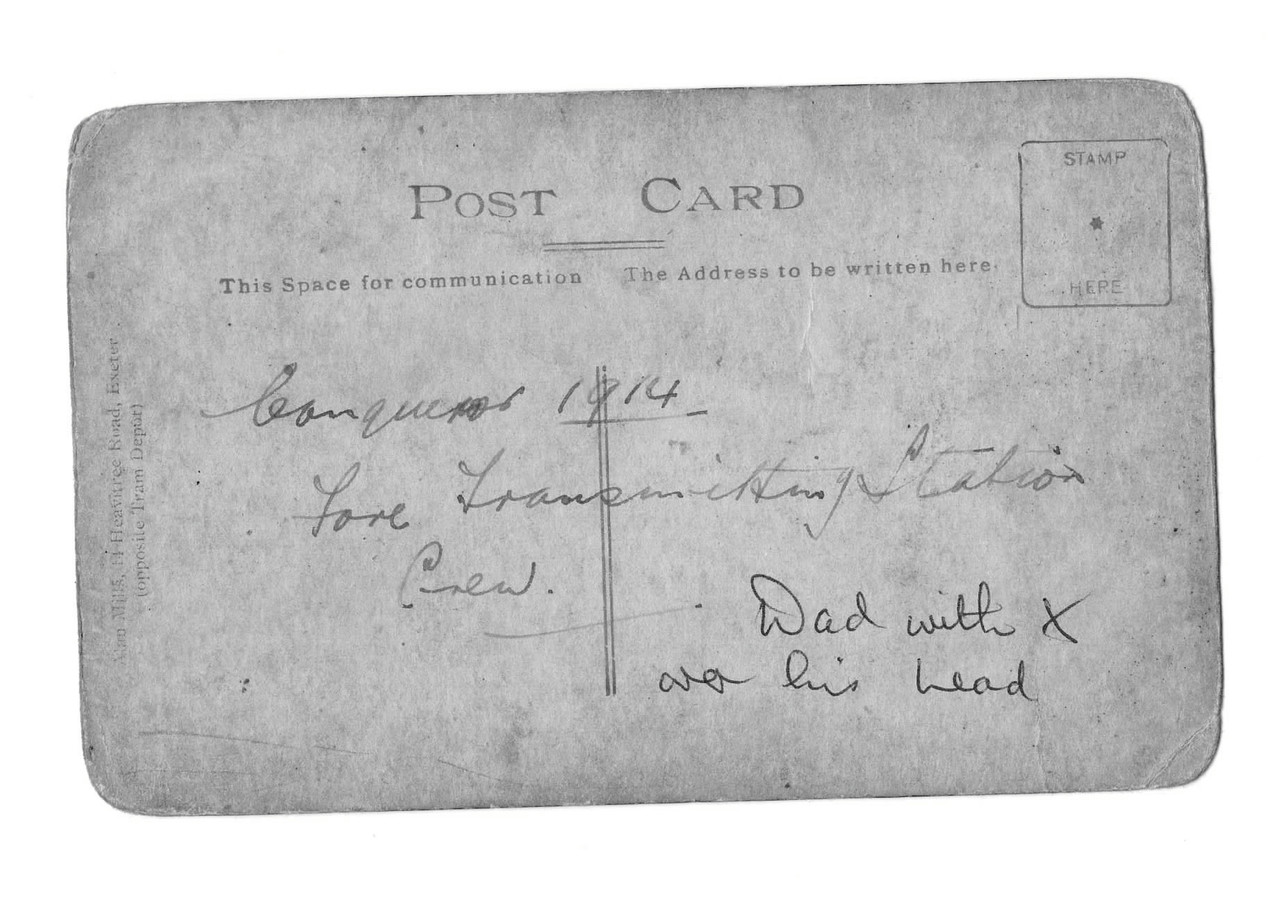 POST CARD
STAMP
HERE
This Space for communication
The Address to be written here.
Conqueror 1914
Fore Transmitting Station
Crew.
Dad with X
over his head
Mills, 14 Heavitree Road, Exeter
(opposite Tram Depot)